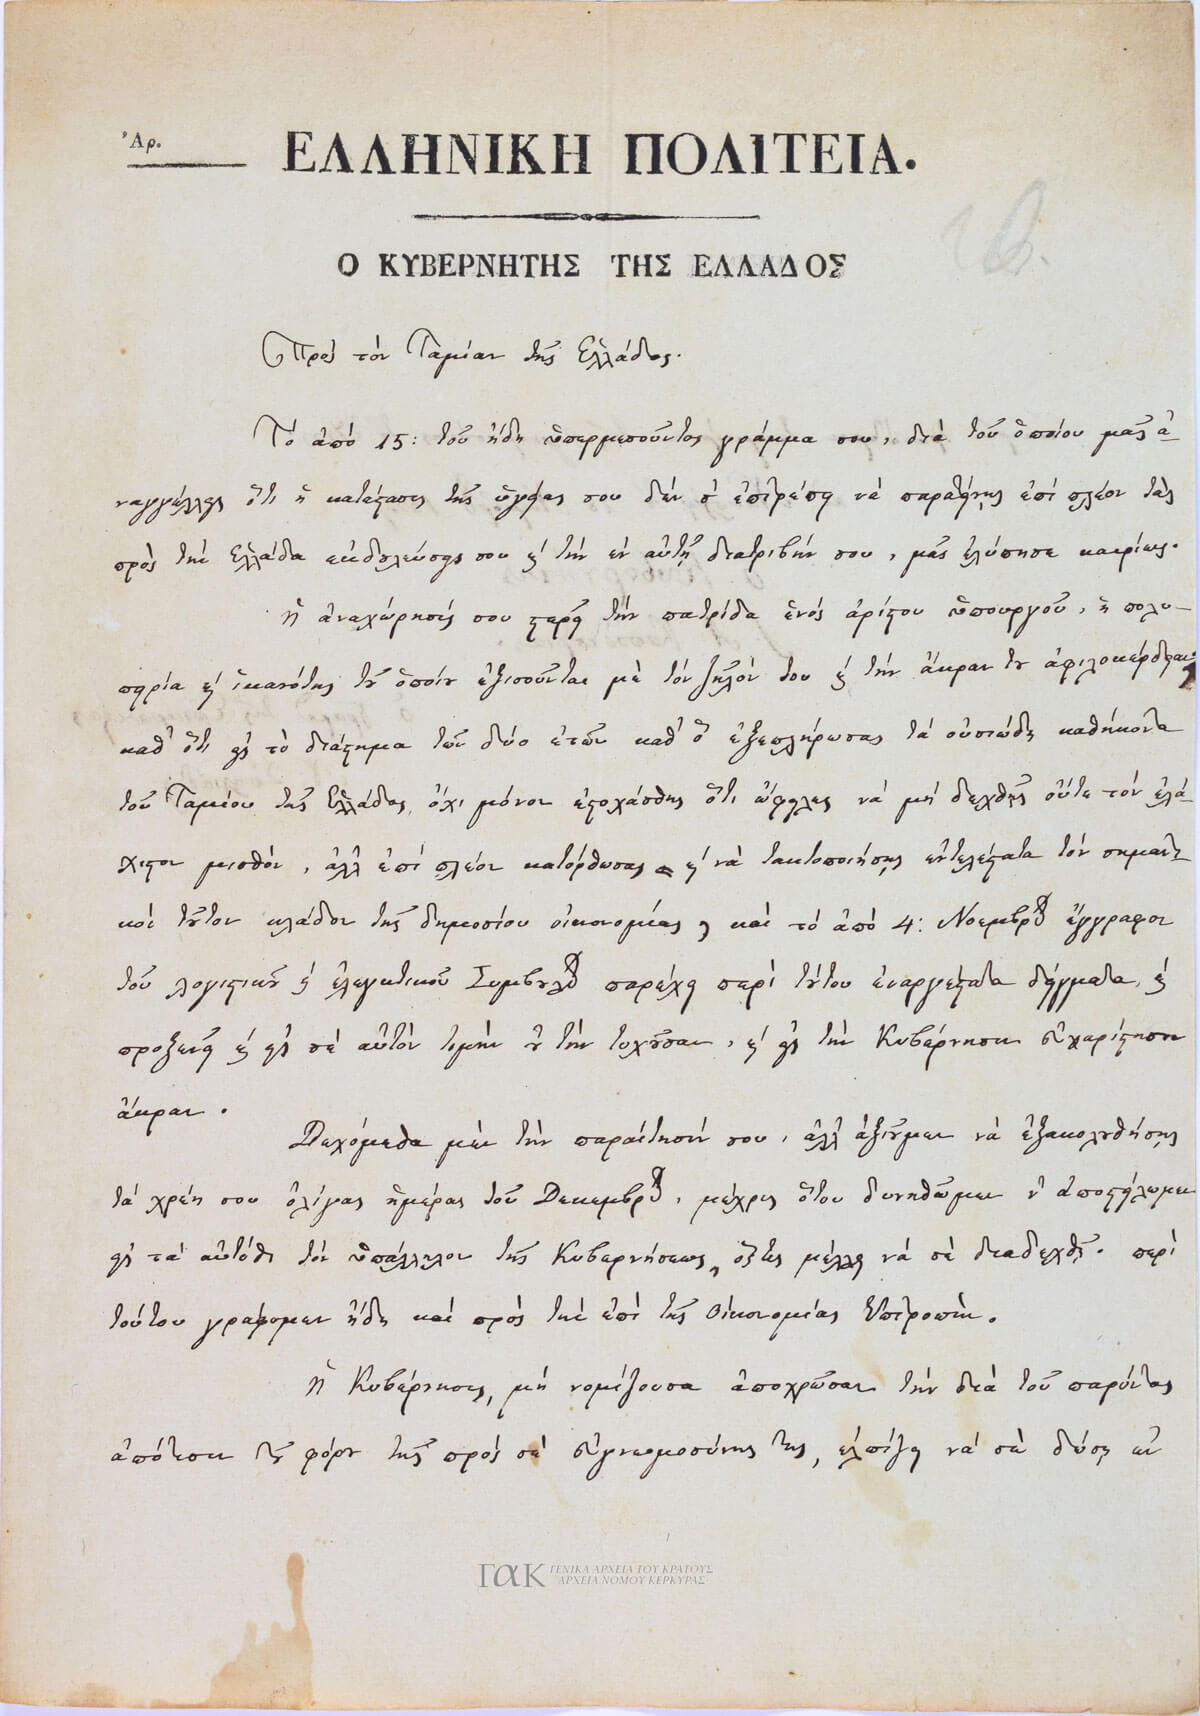 Ἀρ.
ΕΛΛΗΝΙΚΗ ΠΟΛΙΤΕΙΑ.
Ο ΚΥΒΕΡΝΗΤΗΣ ΤΗΣ ΕΛΛΑΔΟΣ
Πρὸς τὸν Ταμίαν τῆς Ἑλλάδος.
Τὸ ἀπὸ 15: τοῦ ἤδη ὑπερμεσοῦντος γράμμα σου, διὰ τοῦ ὁποίου μᾶς ἀ-
ναγγέλλεις ὅτι ἡ κατάστασις τῆς ὑγείας σου δὲν σ' ἐπιτρέπει νὰ παρατείνῃς ἐπὶ πλέον τὰς
πρὸς τὴν Ἑλλάδα ἐκδουλεύσεις σου καὶ τὴν ἐν αὐτῇ διατριβήν σου, μᾶς ἐλύπησε καιρίως.
Ἡ ἀναχώρησίς σου στερεῖ τὴν πατρίδα ἑνὸς ἀρίστου ὑπουργοῦ, ἡ πολυ-
πειρία καὶ ἱκανότης τοῦ ὁποίου ἐξισοῦνται μὲ τὸν ζῆλόν του καὶ τὴν ἄκραν του ἀφιλοκέρδειαν·
καθ' ὅτι εἰς τὸ διάστημα τῶν δύο ἐτῶν καθ' ὃ ἐξεπλήρωσας τὰ οὐσιώδη καθήκοντα
τοῦ Ταμίου τῆς Ἑλλάδος, ὄχι μόνον ἐστοχάσθης ὅτι ὤφειλες νὰ μὴ δεχθῇς οὔτε τὸν ἐλά-
χιστον μισθόν, ἀλλ' ἐπὶ πλέον κατώρθωσας καὶ νὰ τακτοποιήσῃς ἐντελέστατα τὸν σημαντι-
κὸν τοῦτον κλάδον τῆς δημοσίου οἰκονομίας, καὶ τὸ ἀπὸ 4: Νοεμβρίου ἔγγραφον
τοῦ λογιστικοῦ καὶ ἐλεγκτικοῦ Συμβουλίου παρέχει περὶ τούτου ἐναργέστατα δείγματα, καὶ
προξενεῖ καὶ εἰς σὲ αὐτὸν τιμὴν οὐ τὴν τυχοῦσαν, καὶ εἰς τὴν Κυβέρνησιν εὐχαρίστησιν
ἄκραν.
Δεχόμεθα μὲν τὴν παραίτησίν σου, ἀλλ' ἀξιοῦμεν νὰ ἐξακολουθήσῃς
τὰ χρέη σου ὀλίγας ἡμέρας τοῦ Δεκεμβρίου, μέχρις ὅτου δυνηθῶμεν ν' ἀποστείλωμεν
εἰς τὰ αὐτόθι τὸν ὑπάλληλον τῆς Κυβερνήσεως, ὅστις μέλλει νὰ σὲ διαδεχθῇ. περὶ
τούτου γράφομεν ἤδη καὶ πρὸς τὴν ἐπὶ τῆς Οἰκονομίας Ἐπιτροπήν.
Ἡ Κυβέρνησις, μὴ νομίζουσα ἀποχρῶσαν τὴν διὰ τοῦ παρόντος
ἀπότισιν τοῦ φόρου τῆς πρὸς σὲ εὐγνωμοσύνης της, ἐλπίζει νὰ σὲ δώσῃ ἐν
ΓΑΚ ΓΕΝΙΚΑ ΑΡΧΕΙΑ ΤΟΥ ΚΡΑΤΟΥΣ
ΑΡΧΕΙΑ ΝΟΜΟΥ ΚΕΡΚΥΡΑΣ